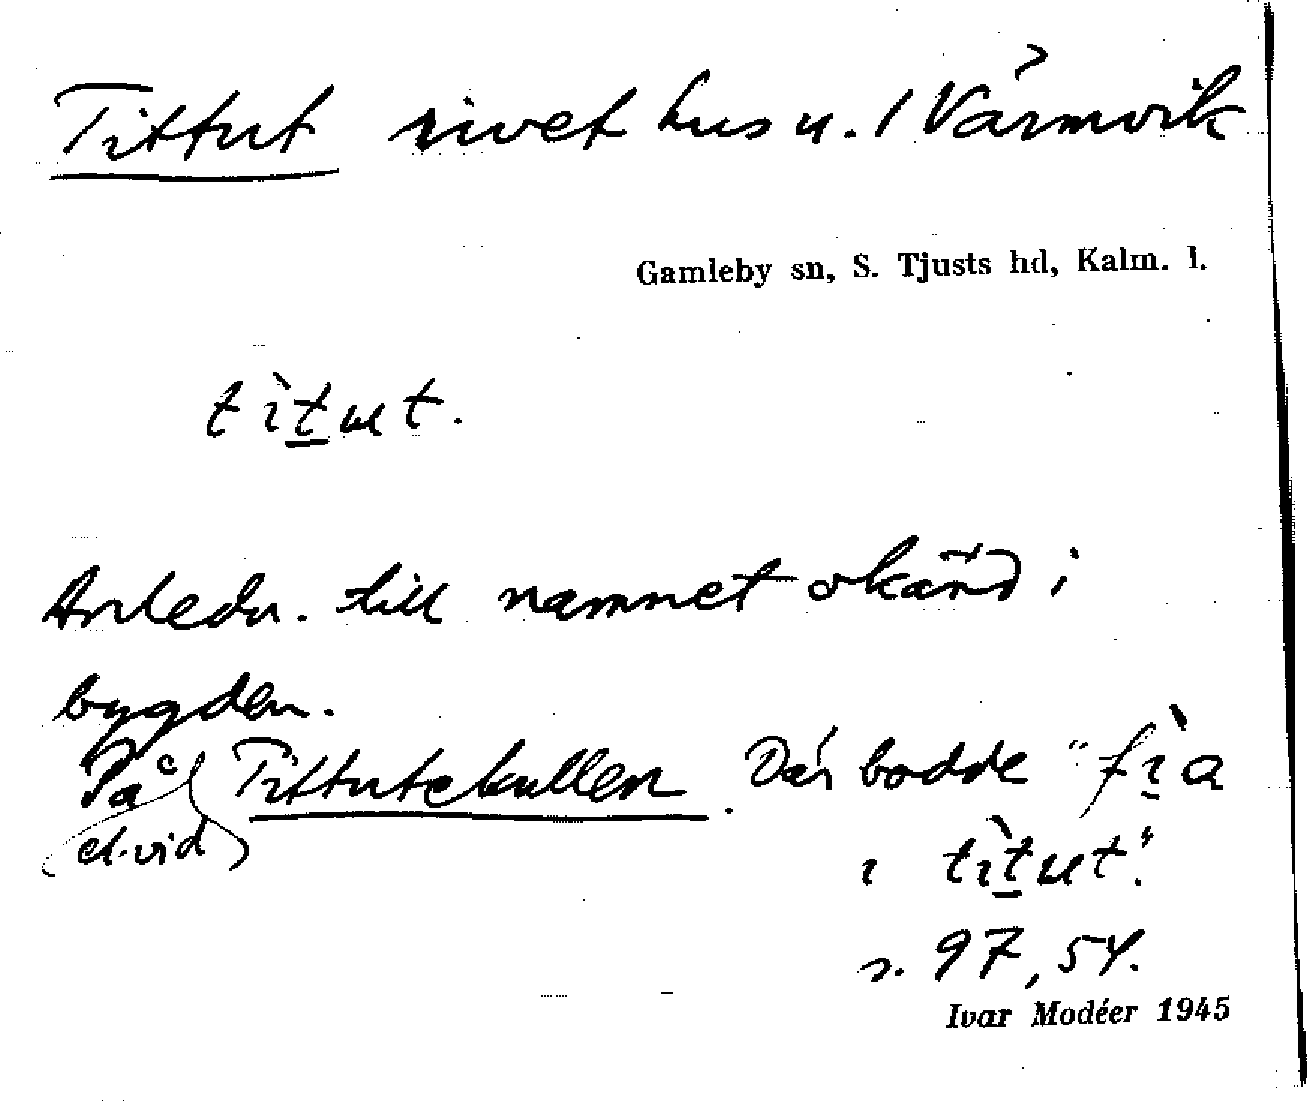 Tittut rivet hus u. 1 Värmvik
Gamleby sn, S. Tjusts hd, Kalm. l.
tìtut.
Anledn. till namnet okänd i
bygden.
På Tittutekullen. Där bodde "fìa
(el. vid)
ı tìtut".
s. 97, 54.
Ivar Modéer 1945